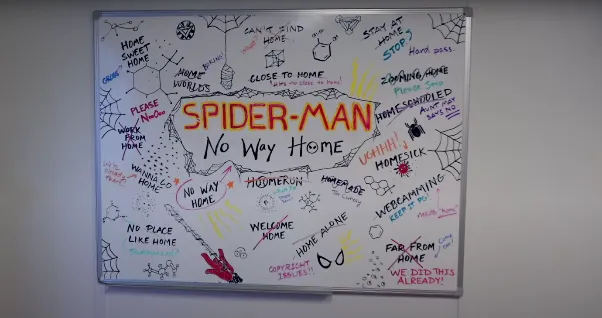 HOME
SWEET
HOME
GROSS
HOME
WORLDS
BORING!
CAN'T FIND
HOME
CLOSE TO HOME
STAY AT
HOME
STOP?
Hard pass.
ZOOMING HOME
Please Stop
HOMESCHOOLED
AUNT MAY
SAYS NO
PLEASE
NooOoo
WORK
FROM
HOME
SPIDER-MAN
No Way Home
UGHHH!
HOMESICK
WANNA GO
HOME
NO WAY
HOME
YES
HOUMERUN
HOMEMADE
WEBCAMMING
KEEP IT PG!
NEEDS "HOME"
NO PLACE
LIKE HOME
WELCOME
HOME
HOME ALONE
COPYRIGHT
ISSUES!!
FAR FROM
HOME
WE DID THIS
ALREADY!